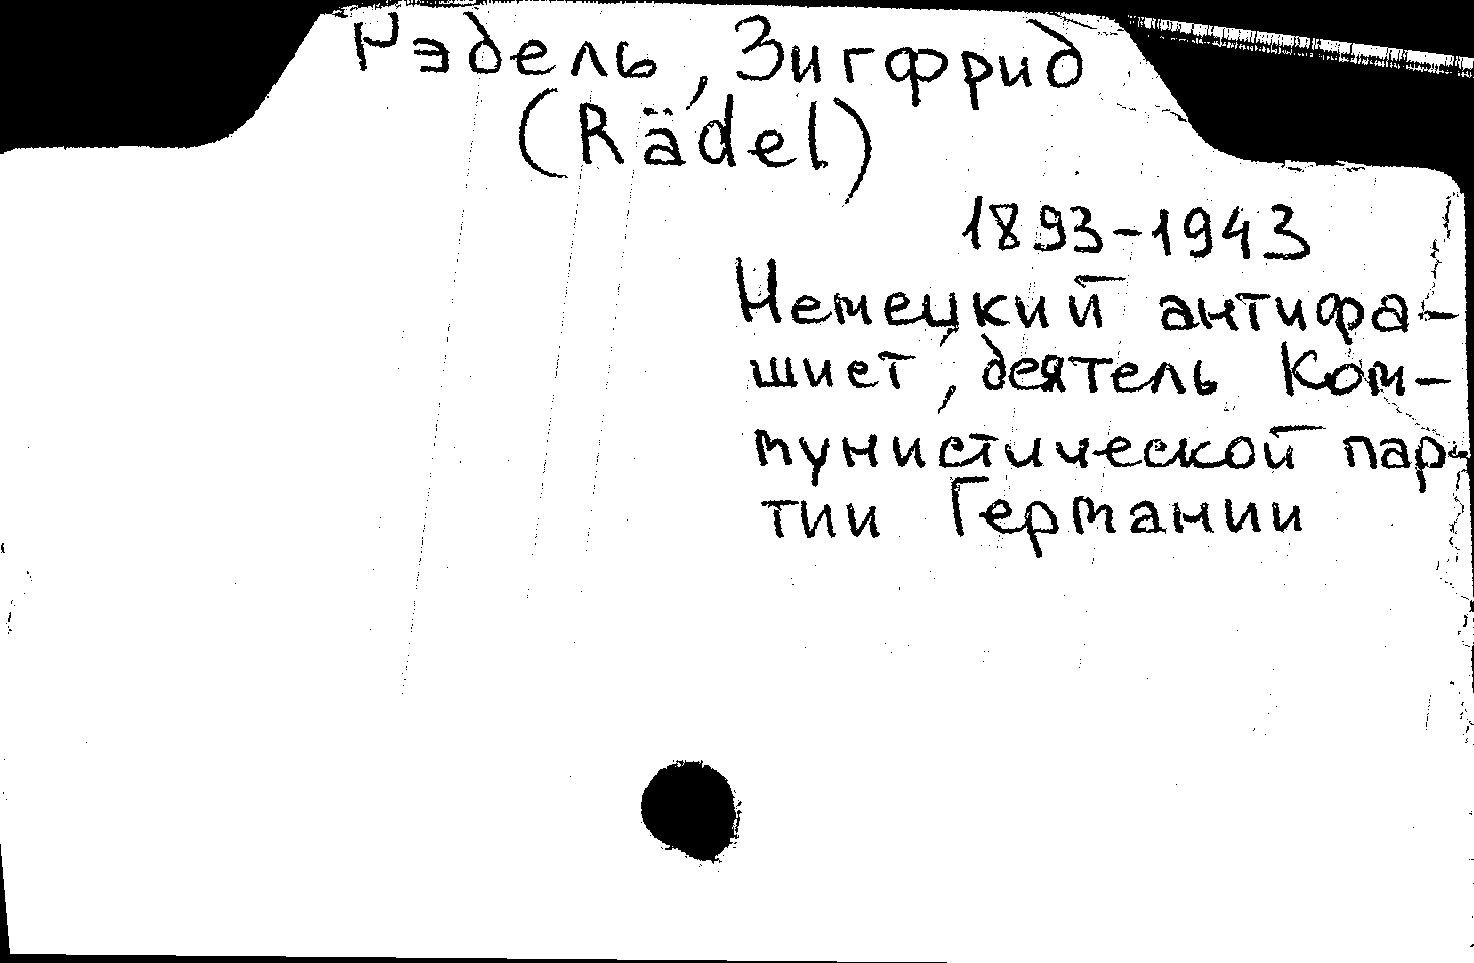 Рэдель, Зигфрид
(Rädel)
1893-1943
Немецкий антифа-
шист, деятель Ком-
мунистической пар-
тии Германии